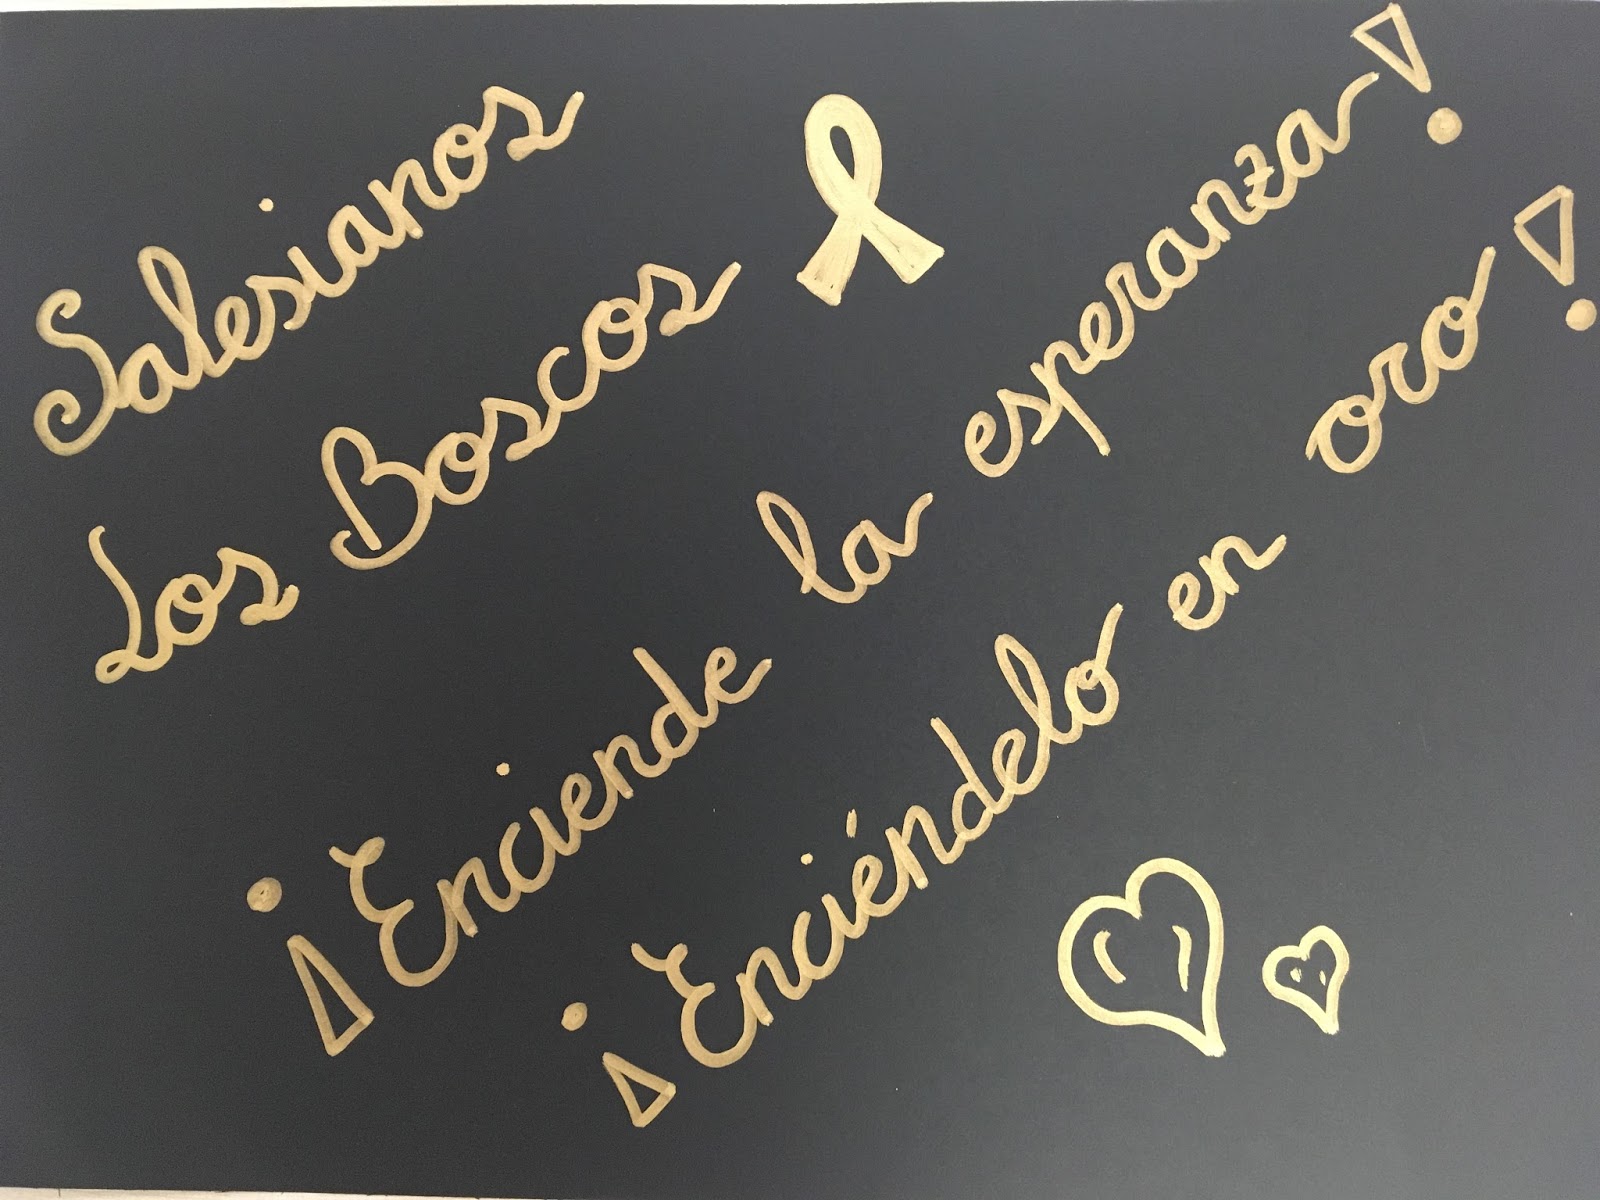 Salesianos
Los Boscos
¡Enciende la esperanza!
¡Enciéndelo en oro!